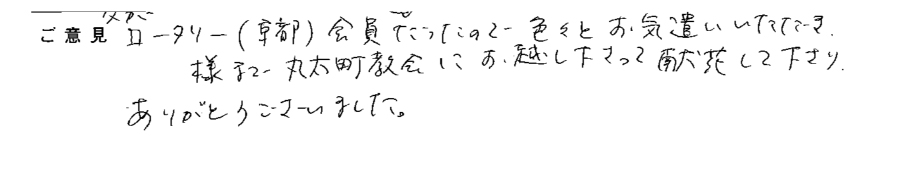 父が
ご意見 ロータリー(京都)会員だったので色々とお気遣いいただき、
様まで丸太町教会にお越し下さって献花して下さり、
ありがとうございました。